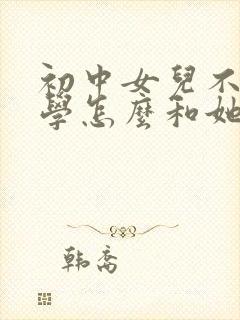 初中女兒不
學怎麼和她
韓喬